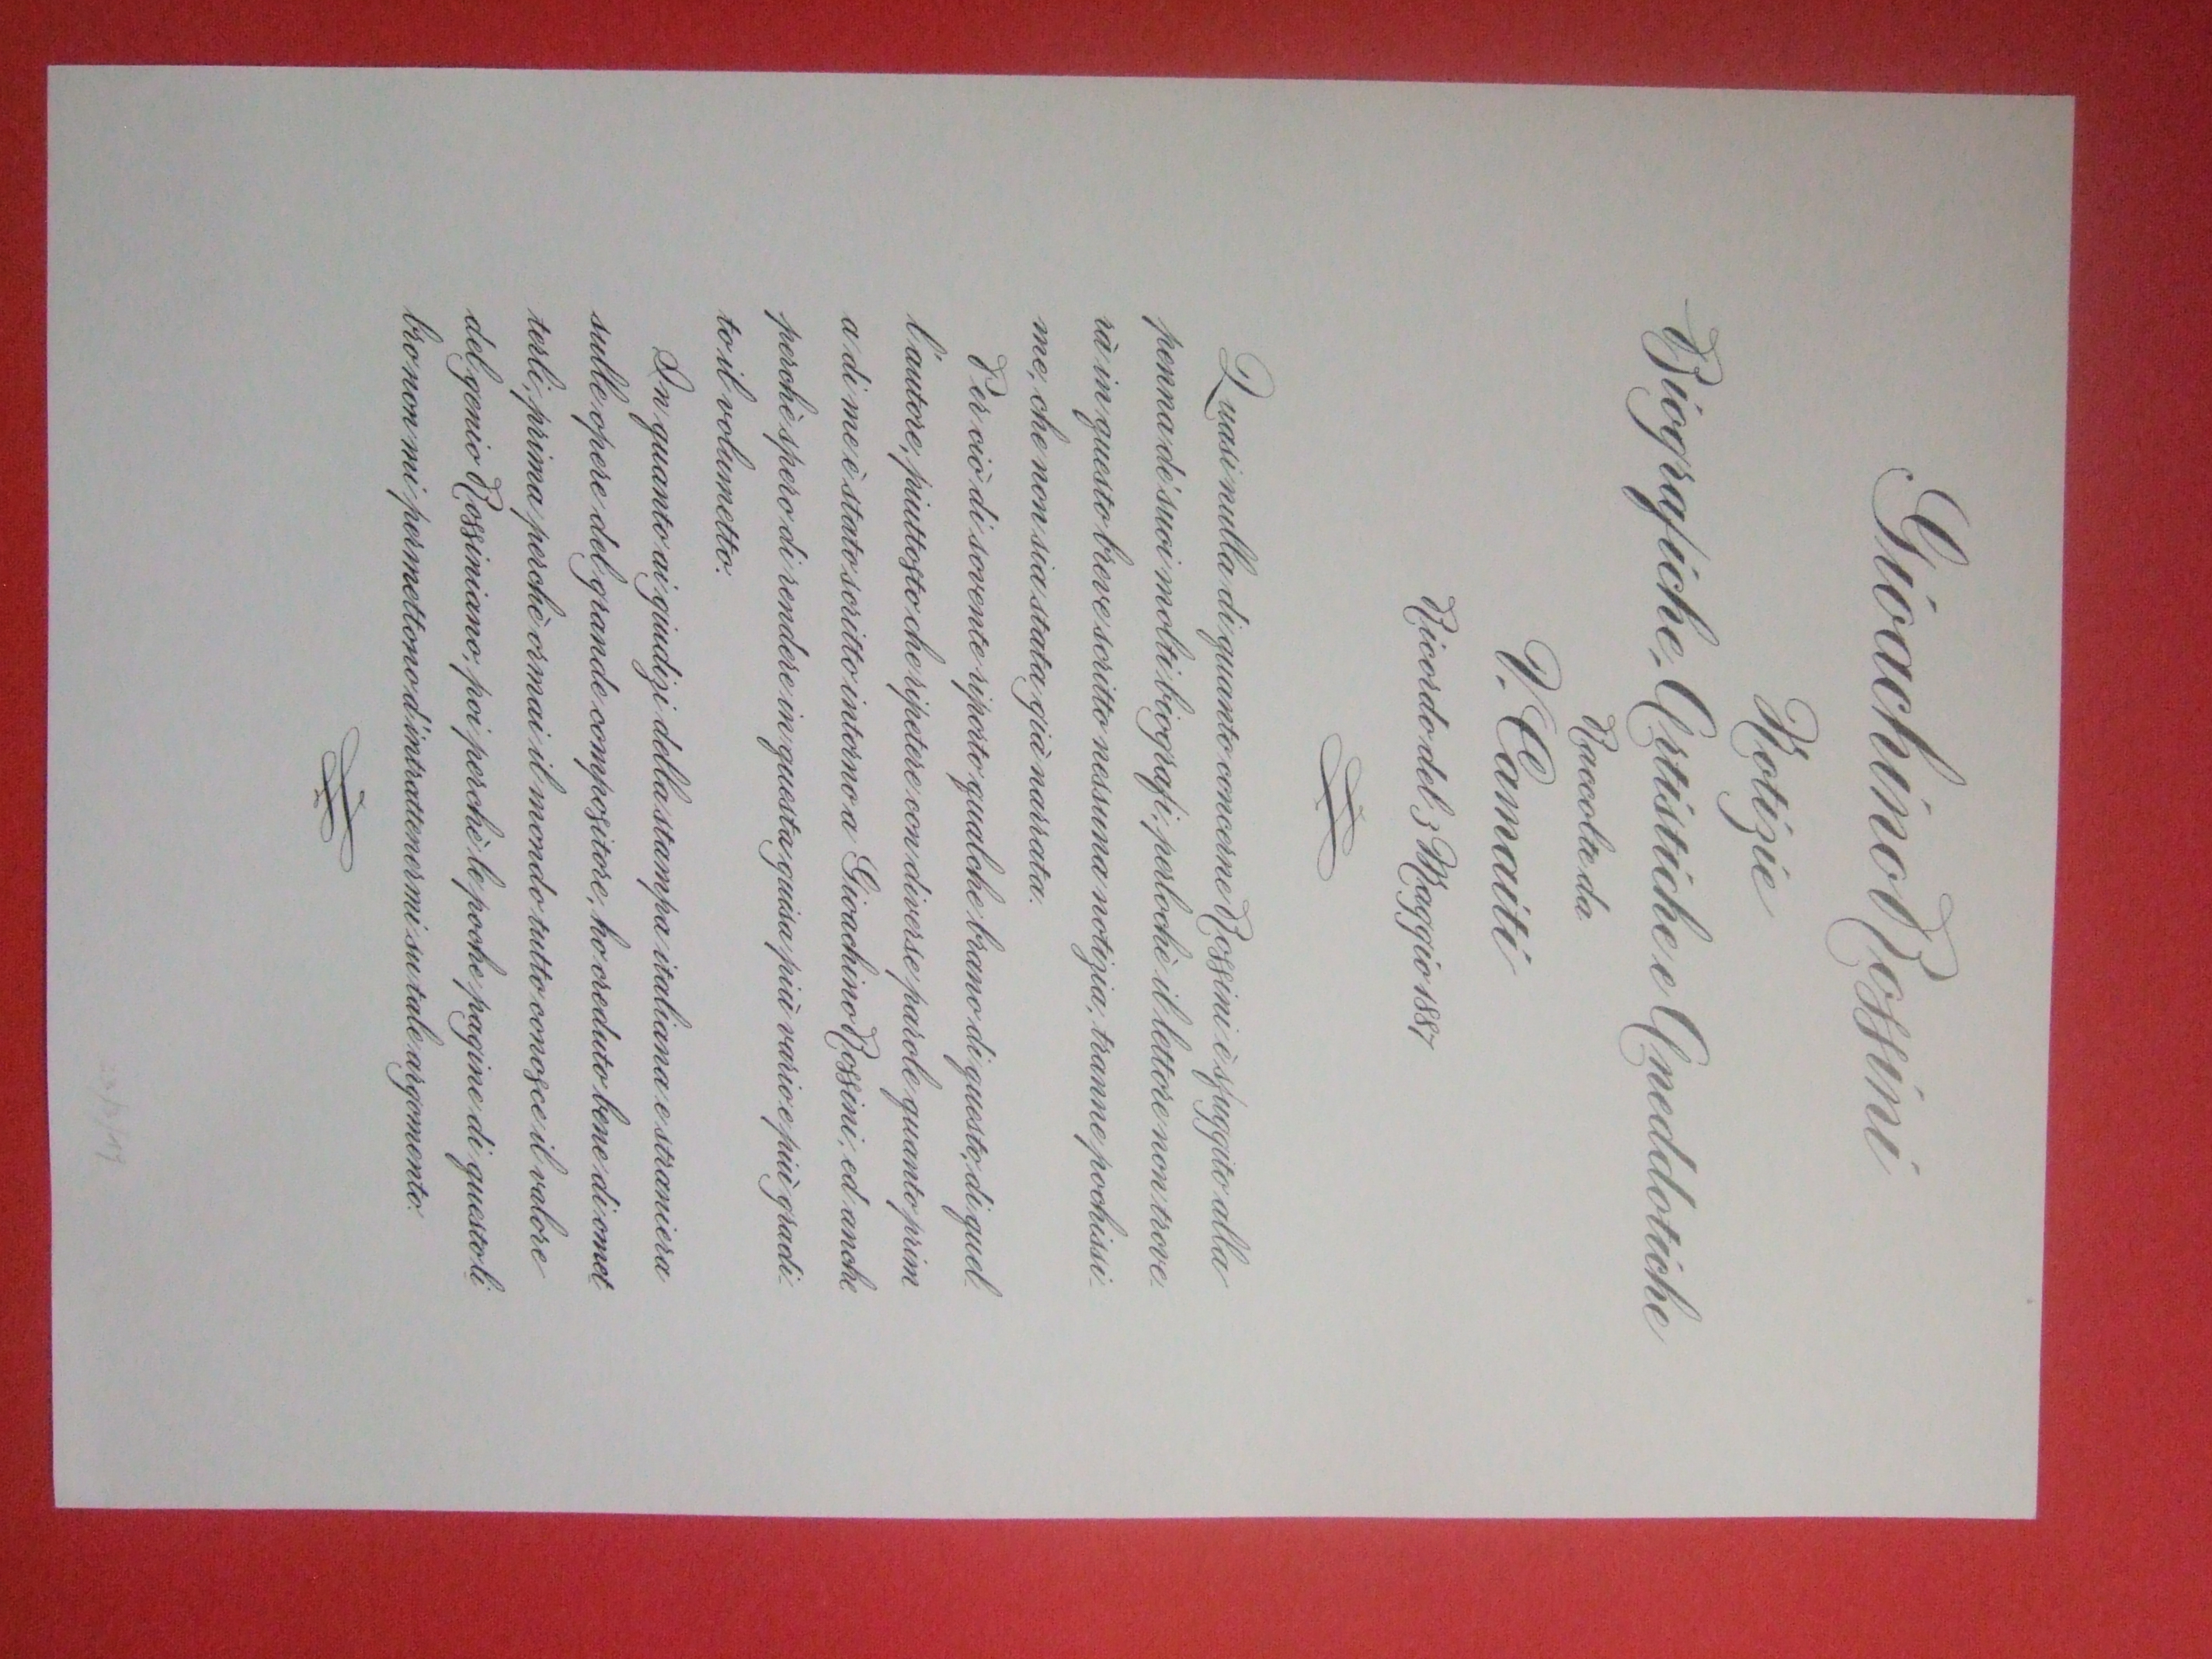 Gioachino Rossini
Notizie
Biografiche, Artistiche e Aneddotiche
Raccolte da
V. Camaiti
Ricordo del 3 Maggio 1887
Quasi nulla di quanto concerne Rossini è sfuggito alla
penna de' suoi molti biografi; perlochè il lettore non trove-
rà in questo breve scritto nessuna notizia, tranne pochissi-
me, che non sia stata già narrata.
Per ciò di sovente riporto qualche brano di questo, di quel-
l'autore, piuttosto che ripetere con diverse parole quanto prim
a di me è stato scritto intorno a Gioachino Rossini, ed anche
perchè spero di rendere in questa guisa più vario e più gradi-
to il volumetto.
In quanto ai giudizi della stampa italiana e straniera
sulle opere del grande compositore, ho creduto bene di omet
terli, prima perchè ormai il mondo tutto conosce il valore
del genio Rossiniano; poi perchè le poche pagine di questo li
bro non mi permettono d'intrattenermi su tale argomento.